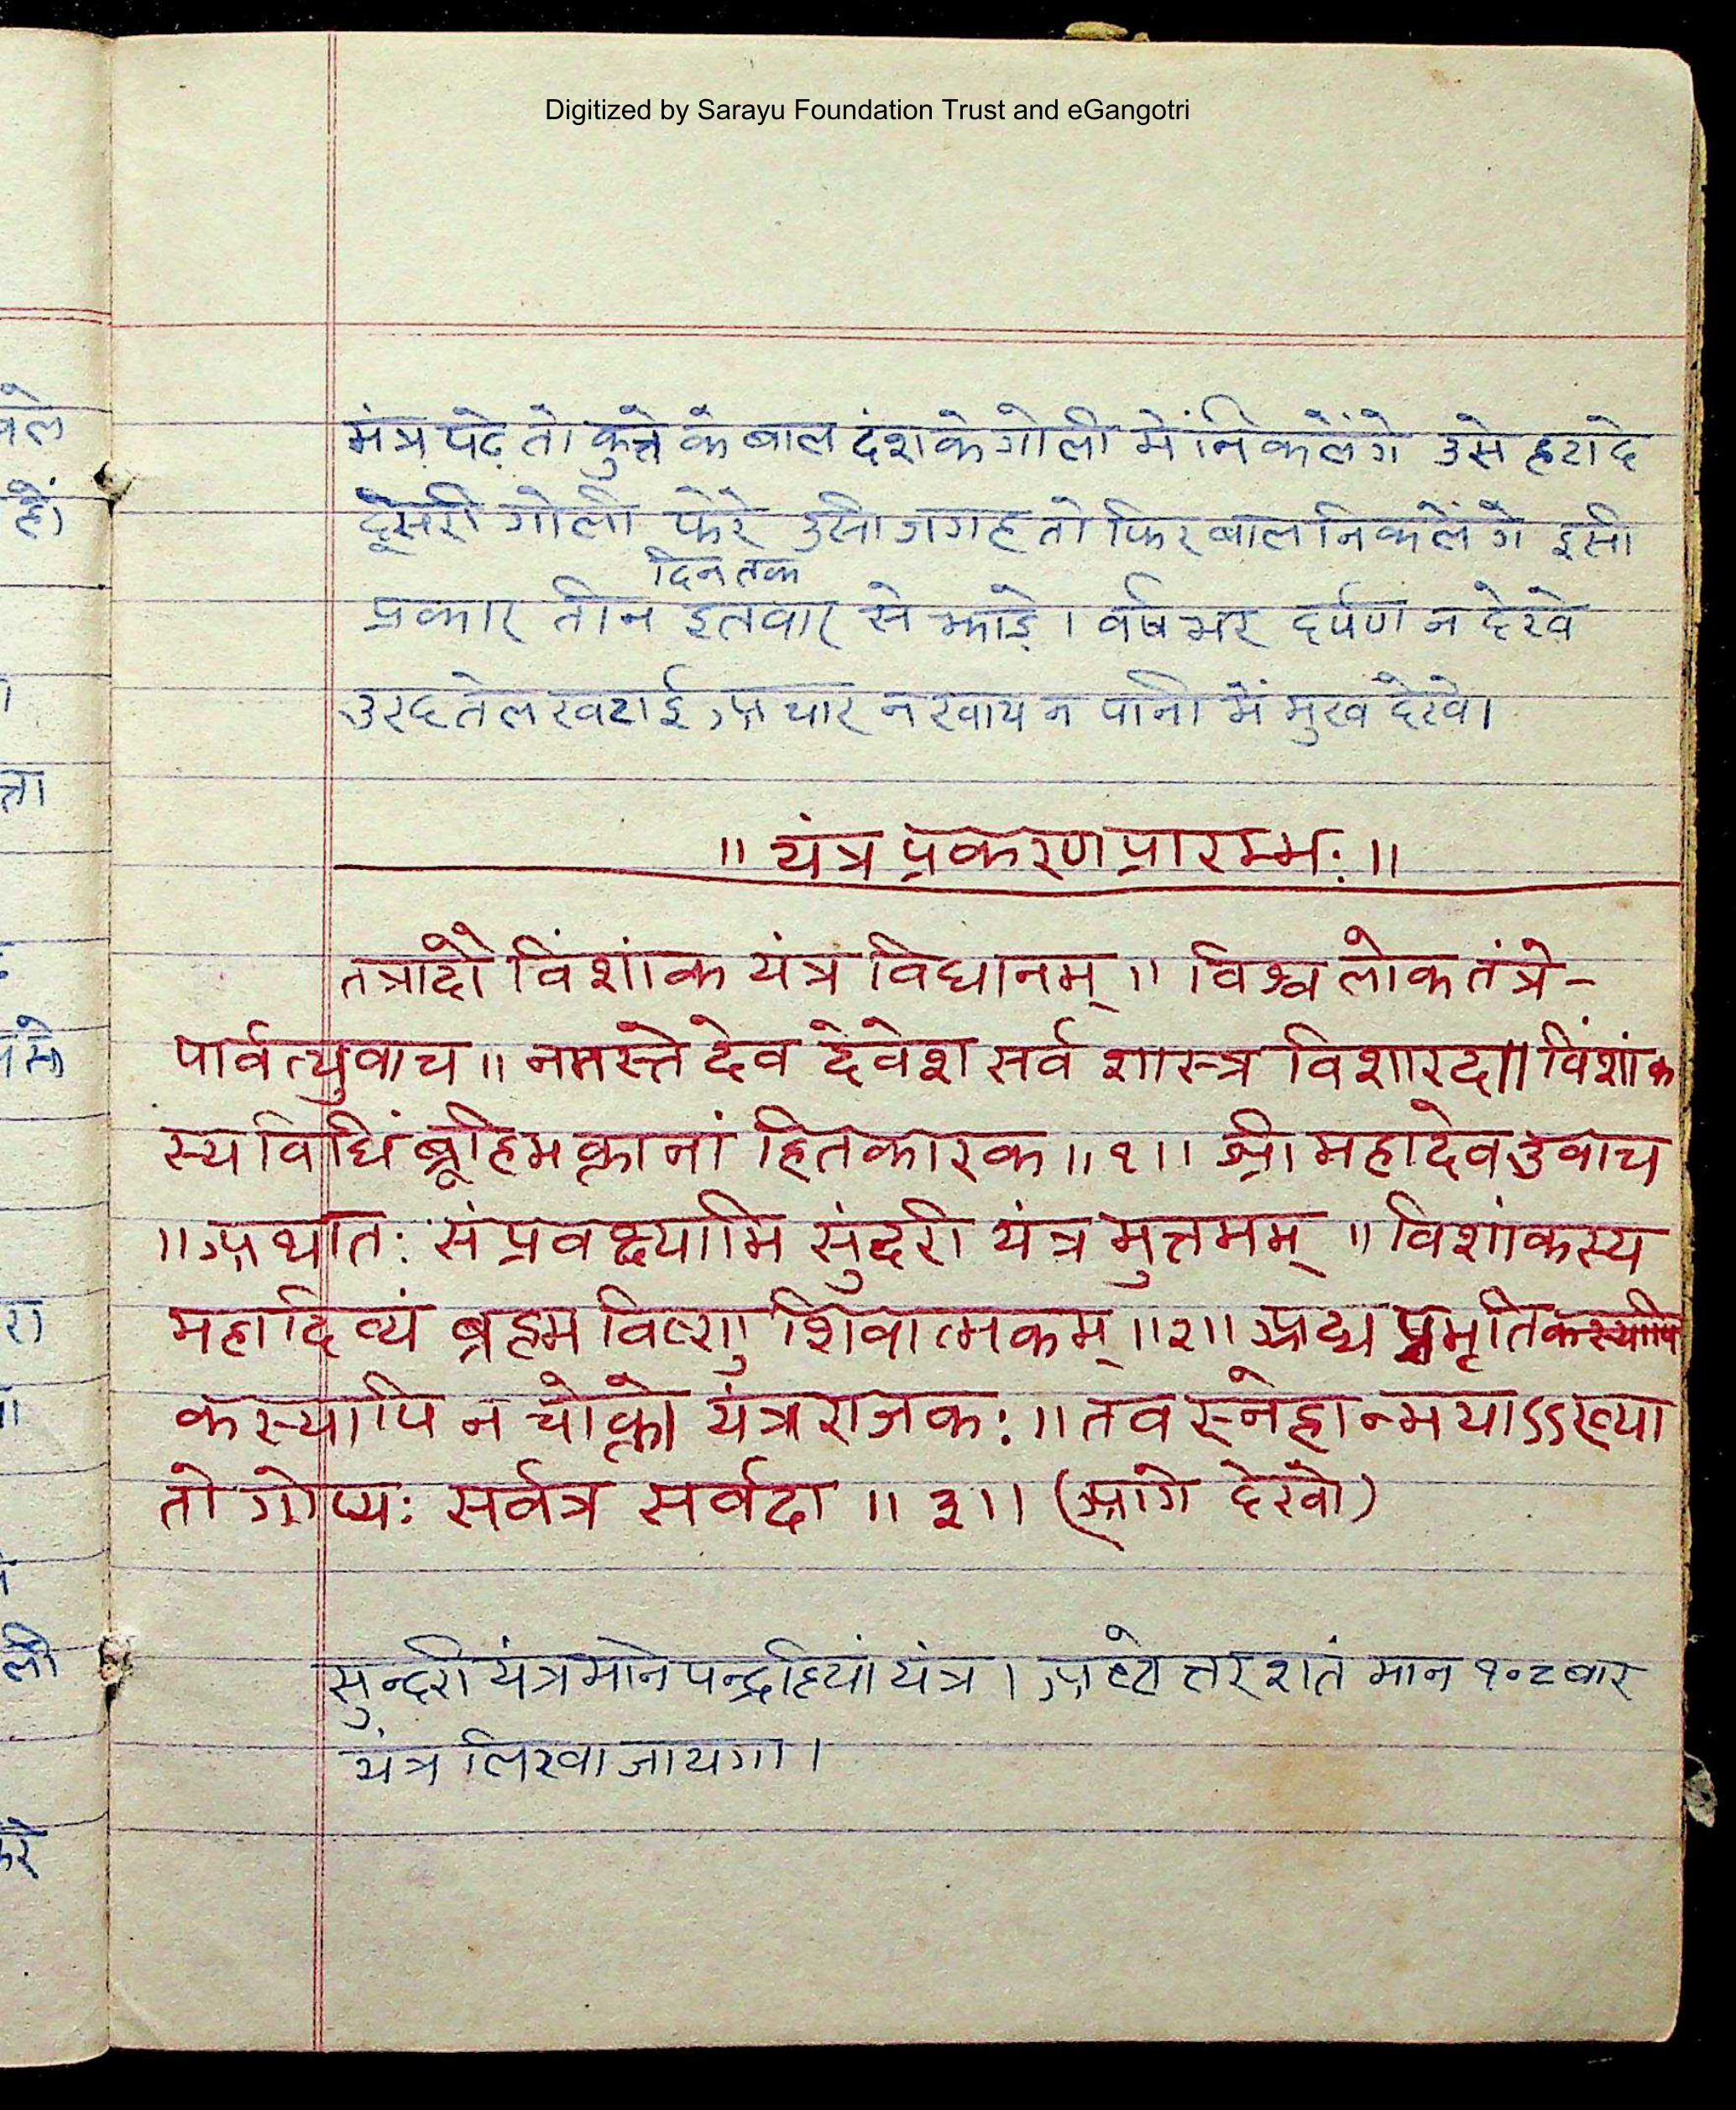 Digitized by Sarayu Foundation Trust and eGangotri
मंत्र पढ़े तो कुत्ते के बाल दंश के गोली में निकलेंगे उसे हटा दे
दूसरी गोली फेरे उसी जगह तो फिर बाल निकलेंगे इसी
दिन तक
प्रकार तीन इतवार से झाड़े। वर्षभर दर्पण न देखे
उरद तेल खटाई अचार न खाय न पानी में मुख देखे।
॥ यंत्र प्रकरण प्रारम्भः ॥
तत्रादौ विंशांक यंत्र विधानम् ॥ विश्वलोक तंत्रे-
पार्वत्युवाच ॥ नमस्ते देव देवेश सर्व शास्त्र विशारद॥ विंशांक
स्य विधिं ब्रूहि भक्तानां हितकारक ॥१॥ श्री महादेव उवाच
॥ अथातः संप्रवक्ष्यामि सुंदरी यंत्र मुत्तमम् ॥ विशांकस्य
महादिव्यं ब्रह्म विष्णु शिवात्मकम् ॥२॥ अद्य प्रभृति कस्यापि
कस्यापि न चोक्तो यंत्रराजकः ॥ तव स्नेहान्मयाऽऽख्या
तो गोप्यः सर्वत्र सर्वदा ॥३॥ (आगे देखो)
सुन्दरी यंत्र माने पन्द्रहियां यंत्र । अष्टोत्तर शतं मान १०८ बार
यंत्र लिखा जायगा।